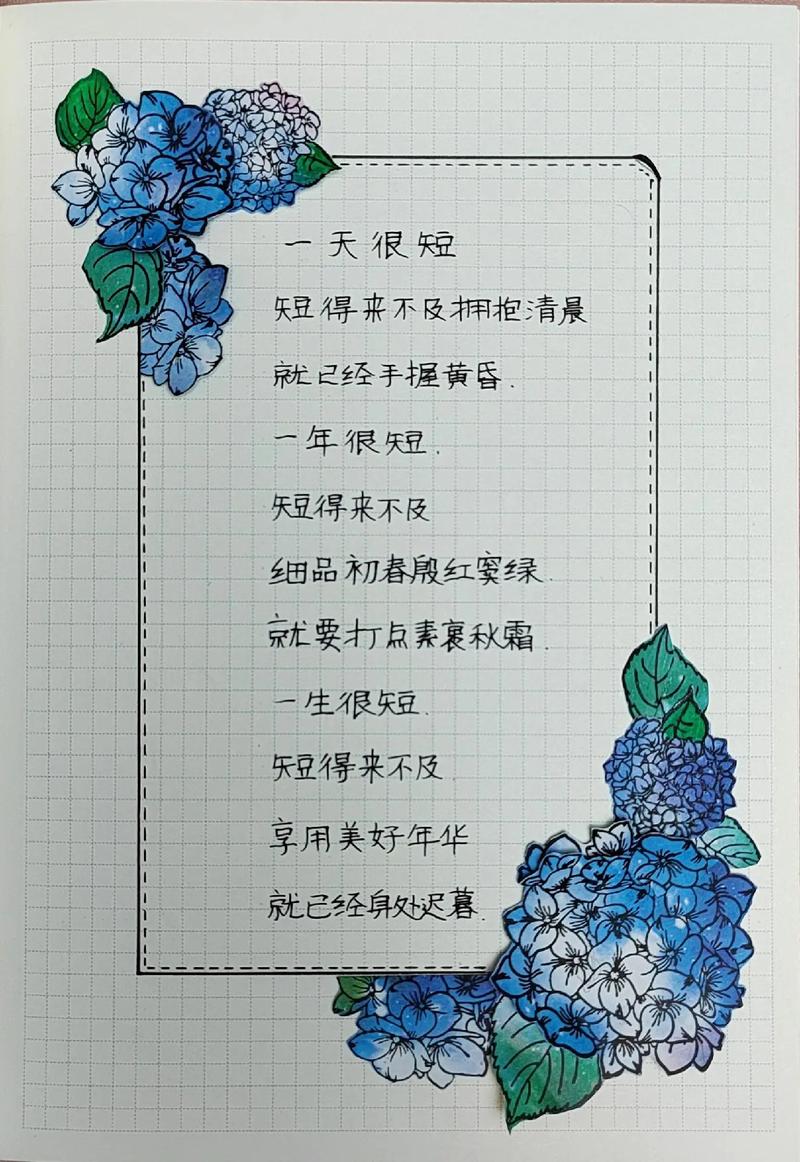 一天很短
短得来不及拥抱清晨
就已经手握黄昏.
一年很短.
短得来不及
细品初春殷红窦绿.
就要打点素裹秋霜.
一生很短.
短得来不及
享用美好年华
就已经身处迟暮.